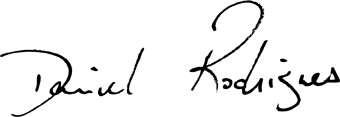 Daniel Rodrigues